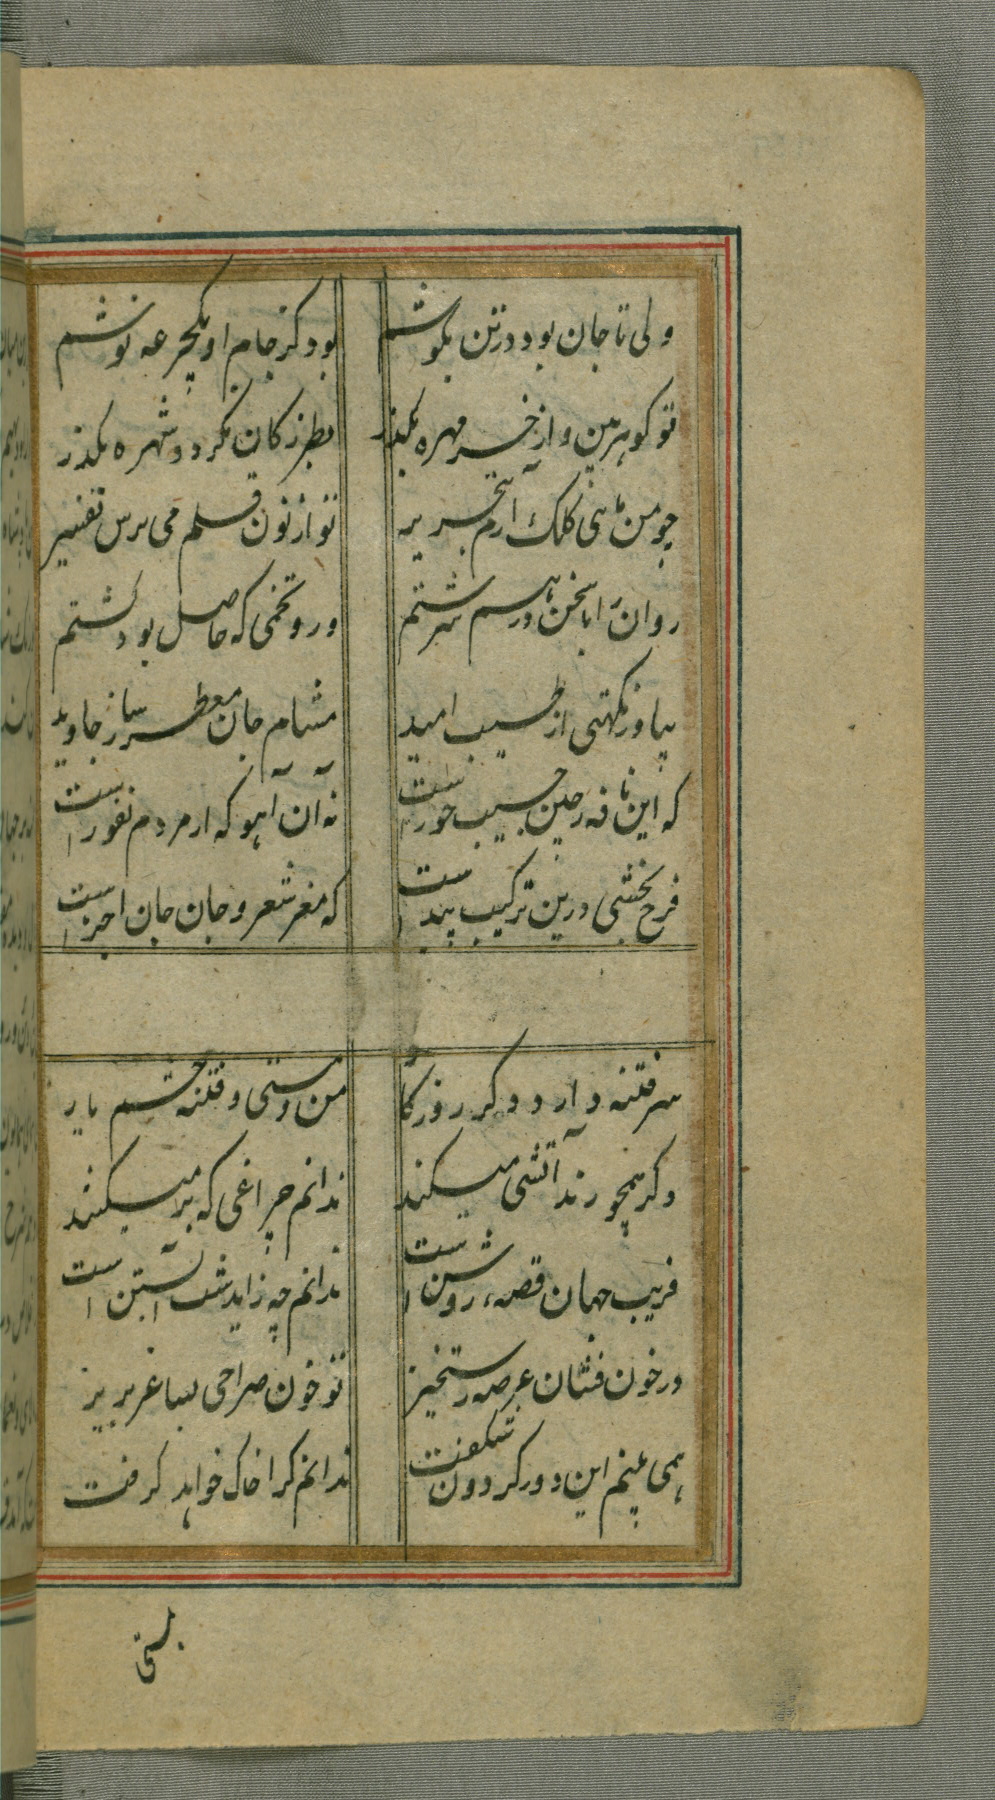 ولی تا جان بود در تن بکوشم بود کز جام او یکجرعه نوشم
تو کوهر بین و از خر مهره بکذر بطرزی کان نکردد شهره بکذر
چو من ماهی کلک آرم بتحریر تو از نون قلم می پرس تفسیر
روان را با سخن در هم سرشتم ورو تخمی که حاصل بود کشتم
بیاور نکهتی از طیب امید مشام جان معطر ساز جاوید
که این نافه ز چین جیب حورست نه آن آهو که از مردم نفورست
فرح بخشی درین ترکیب پیداست که مغز شعر و جان جان اجزاست
سر فتنه دارد دکر روزکار من و مستی و فتنه چشم یار
دکر همچو رند آتشی میکند ندانم چراغی که بر میکند
فریب جهان قصهٔ روشن است ندانم چه زاید شب آبستن است
در خون فشان عرصه رستخیز تو خون صراحی بساغر بریز
همی بینم این دور کردون شکفت ندانم کرا خاک خواهد کرفت